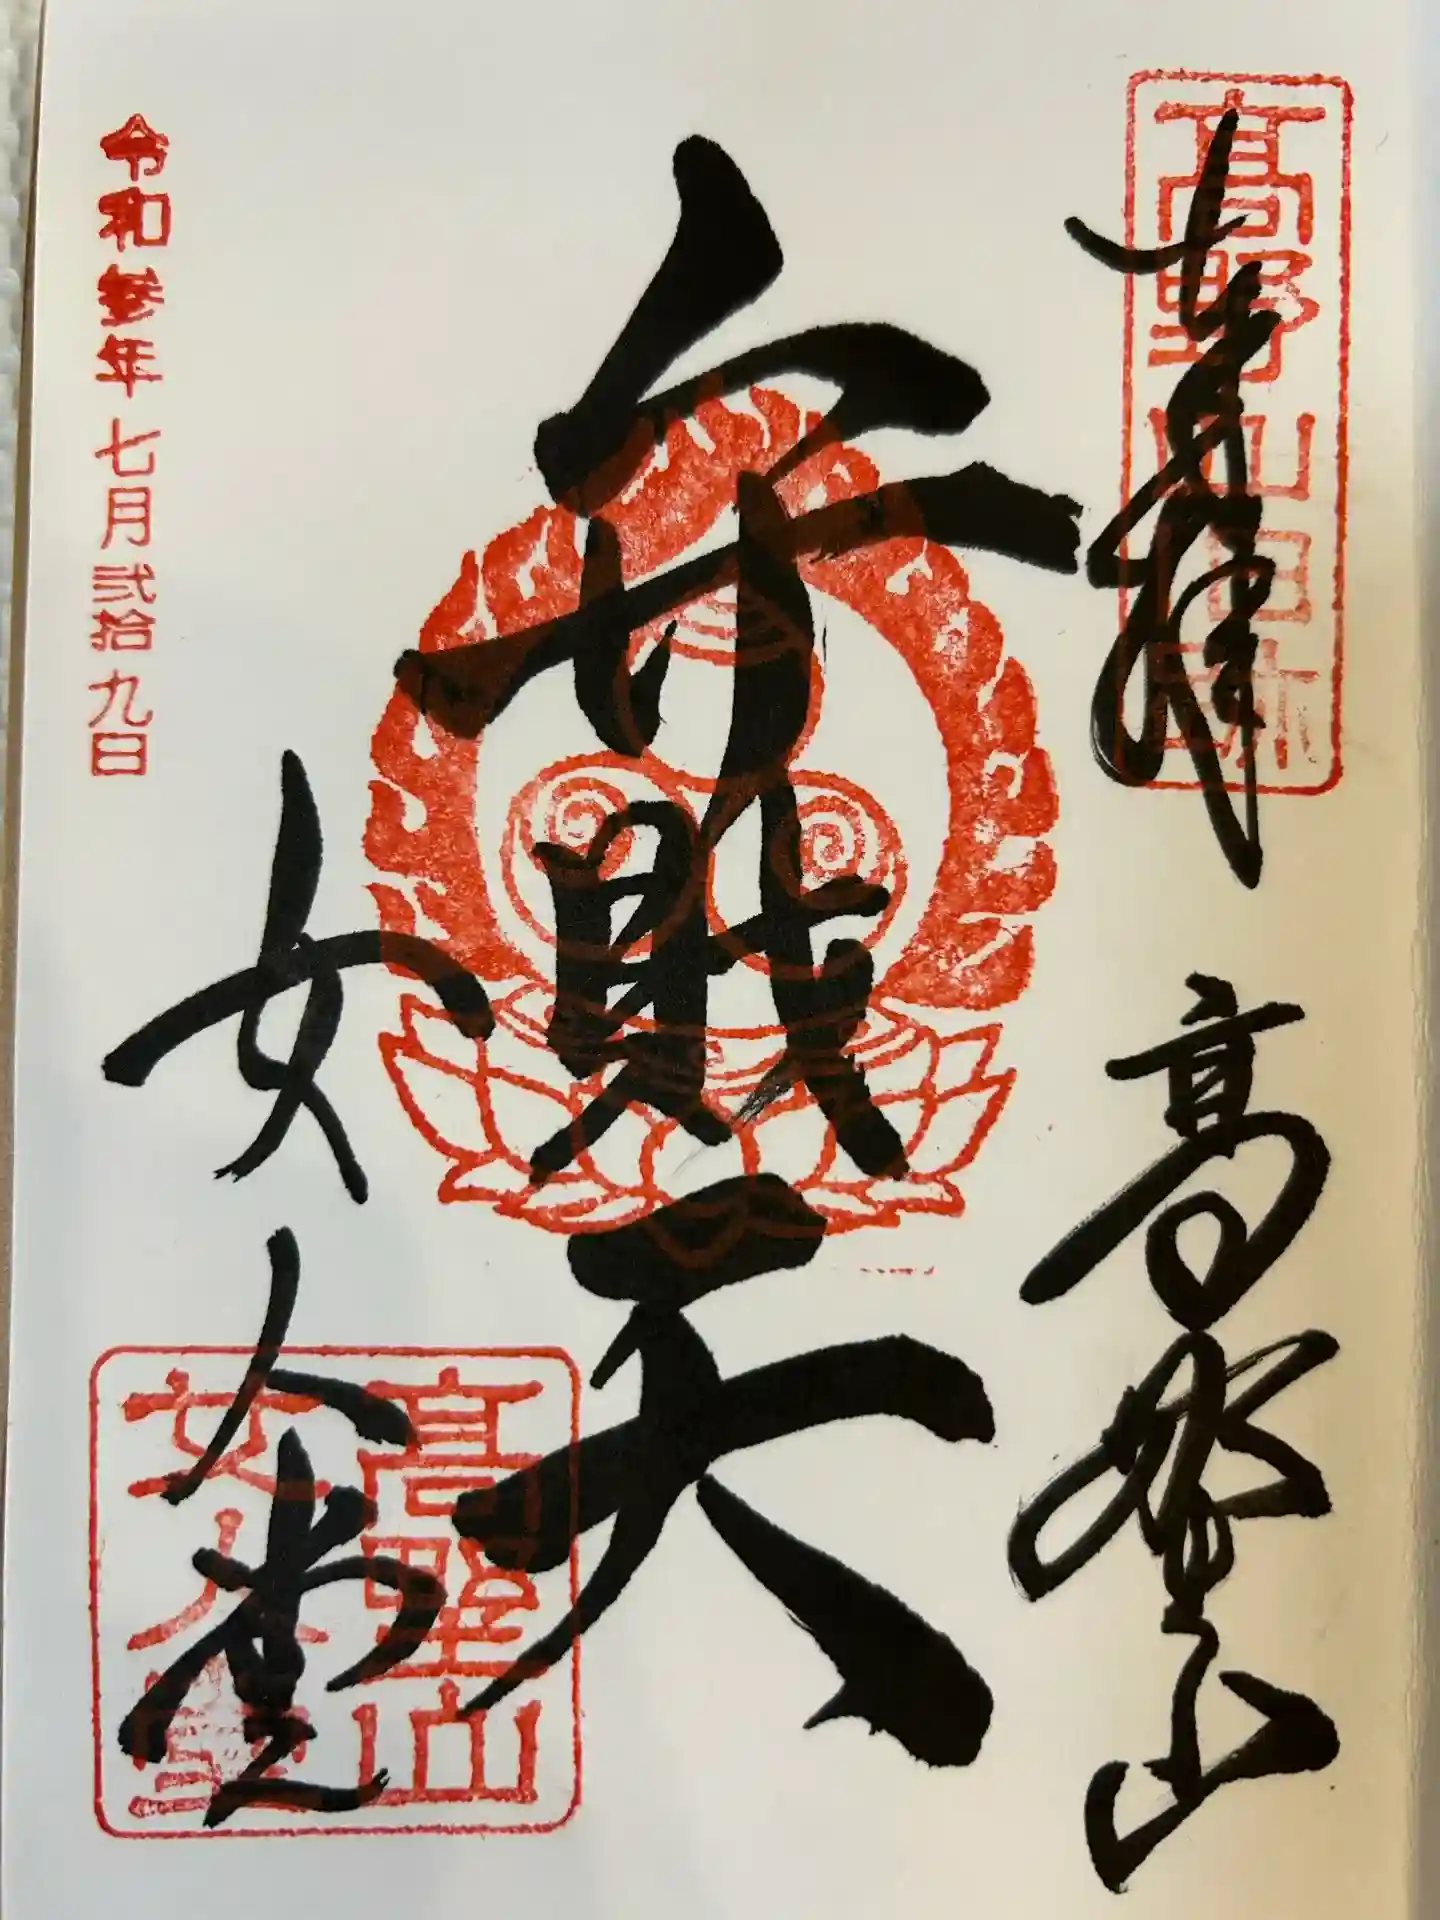 高野山
奉拝
高野山
弁財天
令和参年七月弐拾九日
女人堂
高野山
女人堂